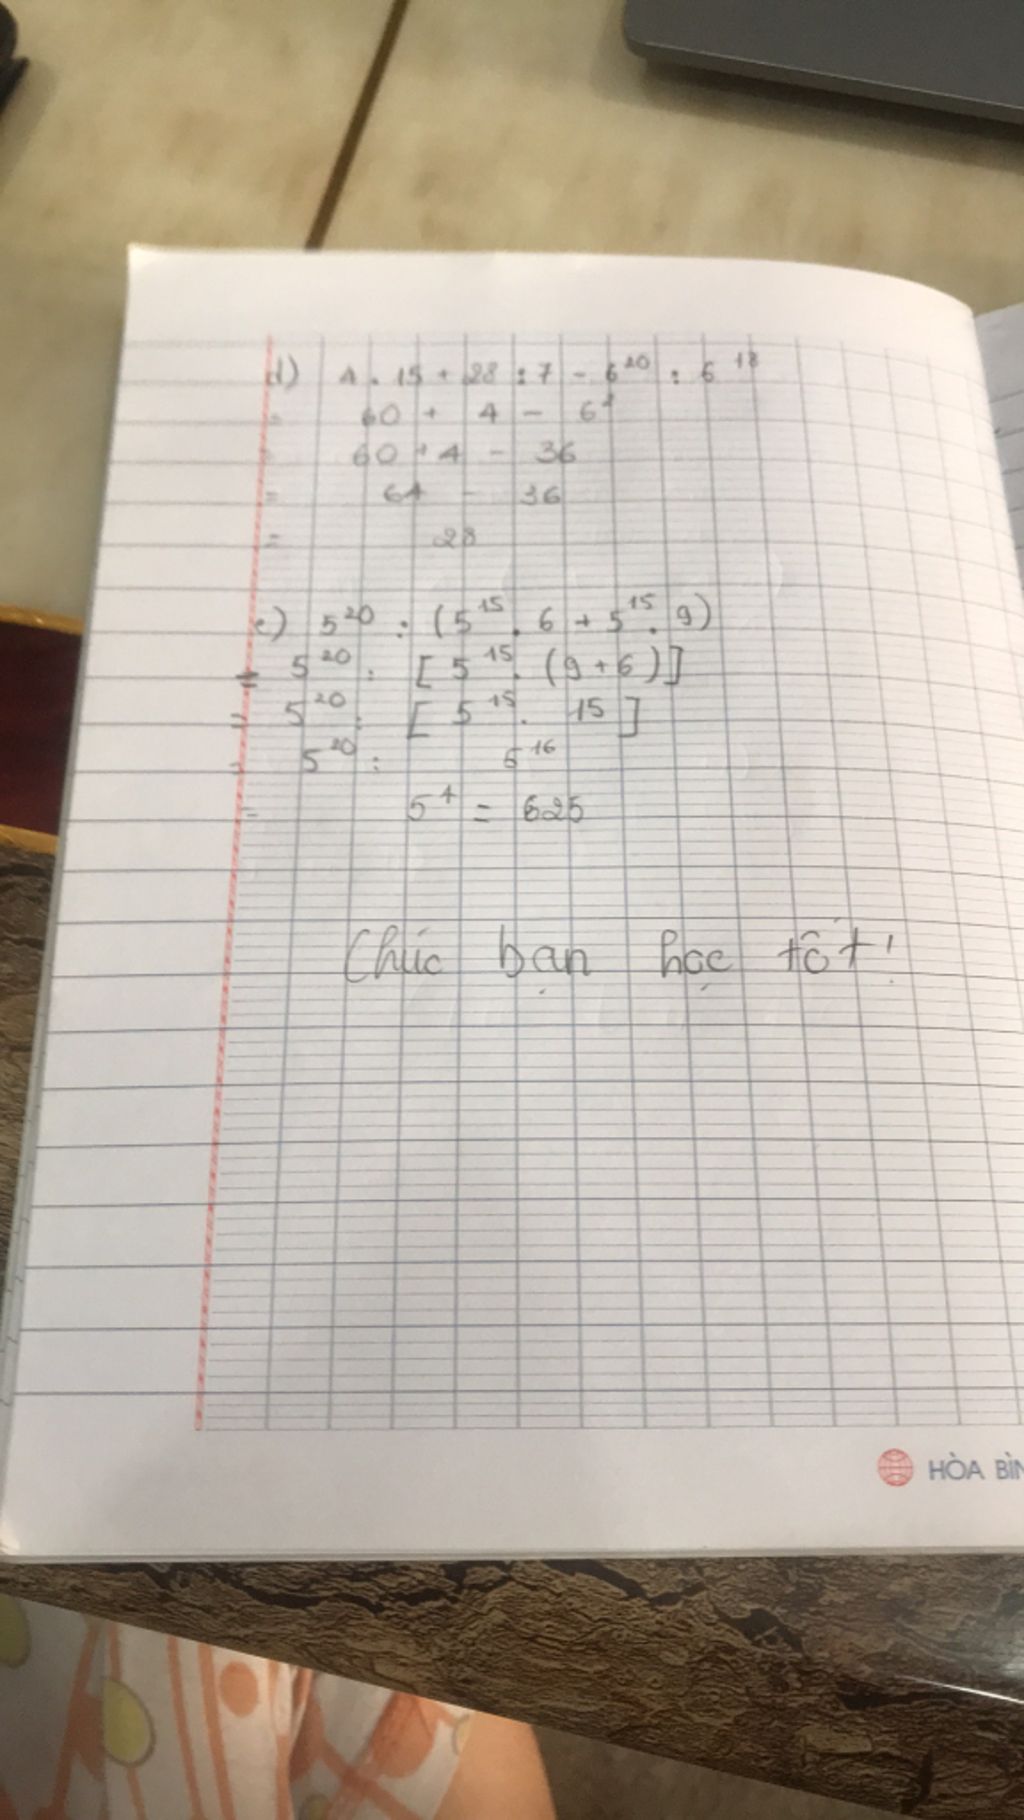 d) 4 . 15 + 28 : 7 - 6²⁰ : 6¹⁸
= 60 + 4 - 6²
= 60 + 4 - 36
= 64 - 36
= 28
e) 5²⁰ : (5¹⁵ . 6 + 5¹⁵ . 9)
= 5²⁰ : [5¹⁵ . (9 + 6)]
= 5²⁰ : [5¹⁵ . 15]
= 5²⁰ : 5¹⁶
= 5⁴ = 625
Chúc bạn học tốt!
HÒA BÌN